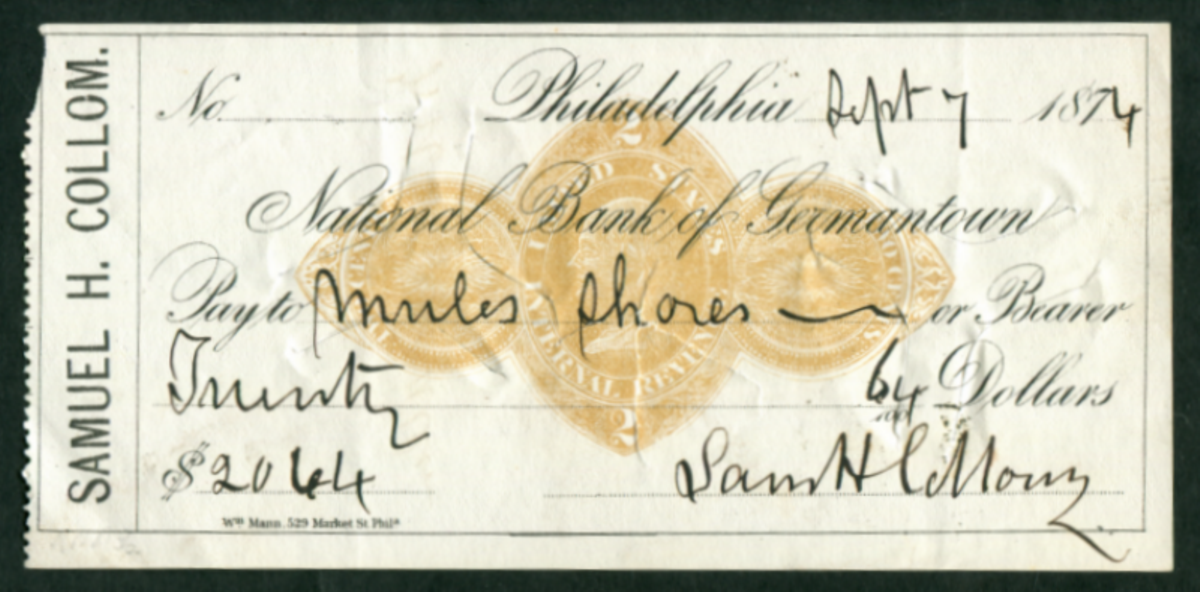 SAMUEL H. COLLOM.
No. Philadelphia Sept 7 1874
2
UNITED STATES
National Bank of Germantown
Pay to mules shoes or Bearer
INTERNAL REVENUE
Twenty 64/100 Dollars
2
$ 20 64 Sam H Collom
Wm Mann. 529 Market St Phila